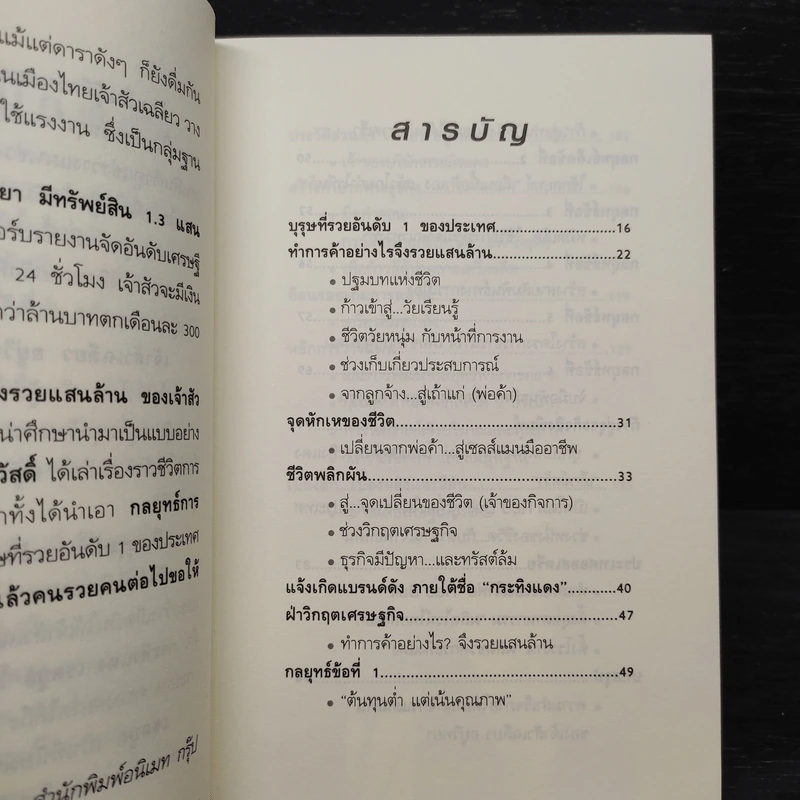 แม้แต่ดาราดังๆ ก็ยังดื่มกัน
นเมืองไทยเจ้าสัวเฉลียว วาง
ใช้แรงงาน ซึ่งเป็นกลุ่มฐาน
ยา มีทรัพย์สิน 1.3 แสน
อร์บรายงานจัดอันดับเศรษฐี
24 ชั่วโมง เจ้าสัวจะมีเงิน
กว่าล้านบาทตกเดือนละ 300
งรวยแสนล้าน ของเจ้าสัว
น่าศึกษานำมาเป็นแบบอย่าง
วัสดิ์ ได้เล่าเรื่องราวชีวิตการ
กทั้งได้นำเอา กลยุทธ์การ
ษที่รวยอันดับ 1 ของประเทศ
แล้วคนรวยคนต่อไปขอให้
สำนักพิมพ์อนิเมท กรุ๊ป
สารบัญ
บุรุษที่รวยอันดับ 1 ของประเทศ.....16
ทำการค้าอย่างไรจึงรวยแสนล้าน.....22
• ปฐมบทแห่งชีวิต
• ก้าวเข้าสู่...วัยเรียนรู้
• ชีวิตวัยหนุ่ม กับหน้าที่การงาน
• ช่วงเก็บเกี่ยวประสบการณ์
• จากลูกจ้าง...สู่เถ้าแก่ (พ่อค้า)
จุดหักเหของชีวิต.....31
• เปลี่ยนจากพ่อค้า...สู่เซลส์แมนมืออาชีพ
ชีวิตพลิกผัน.....33
• สู่...จุดเปลี่ยนของชีวิต (เจ้าของกิจการ)
• ช่วงวิกฤตเศรษฐกิจ
• ธุรกิจมีปัญหา...และทรัสต์ล้ม
แจ้งเกิดแบรนด์ดัง ภายใต้ชื่อ "กระทิงแดง".....40
ฝ่าวิกฤตเศรษฐกิจ.....47
• ทำการค้าอย่างไร? จึงรวยแสนล้าน
กลยุทธ์ข้อที่ 1.....49
• "ต้นทุนต่ำ แต่เน้นคุณภาพ"